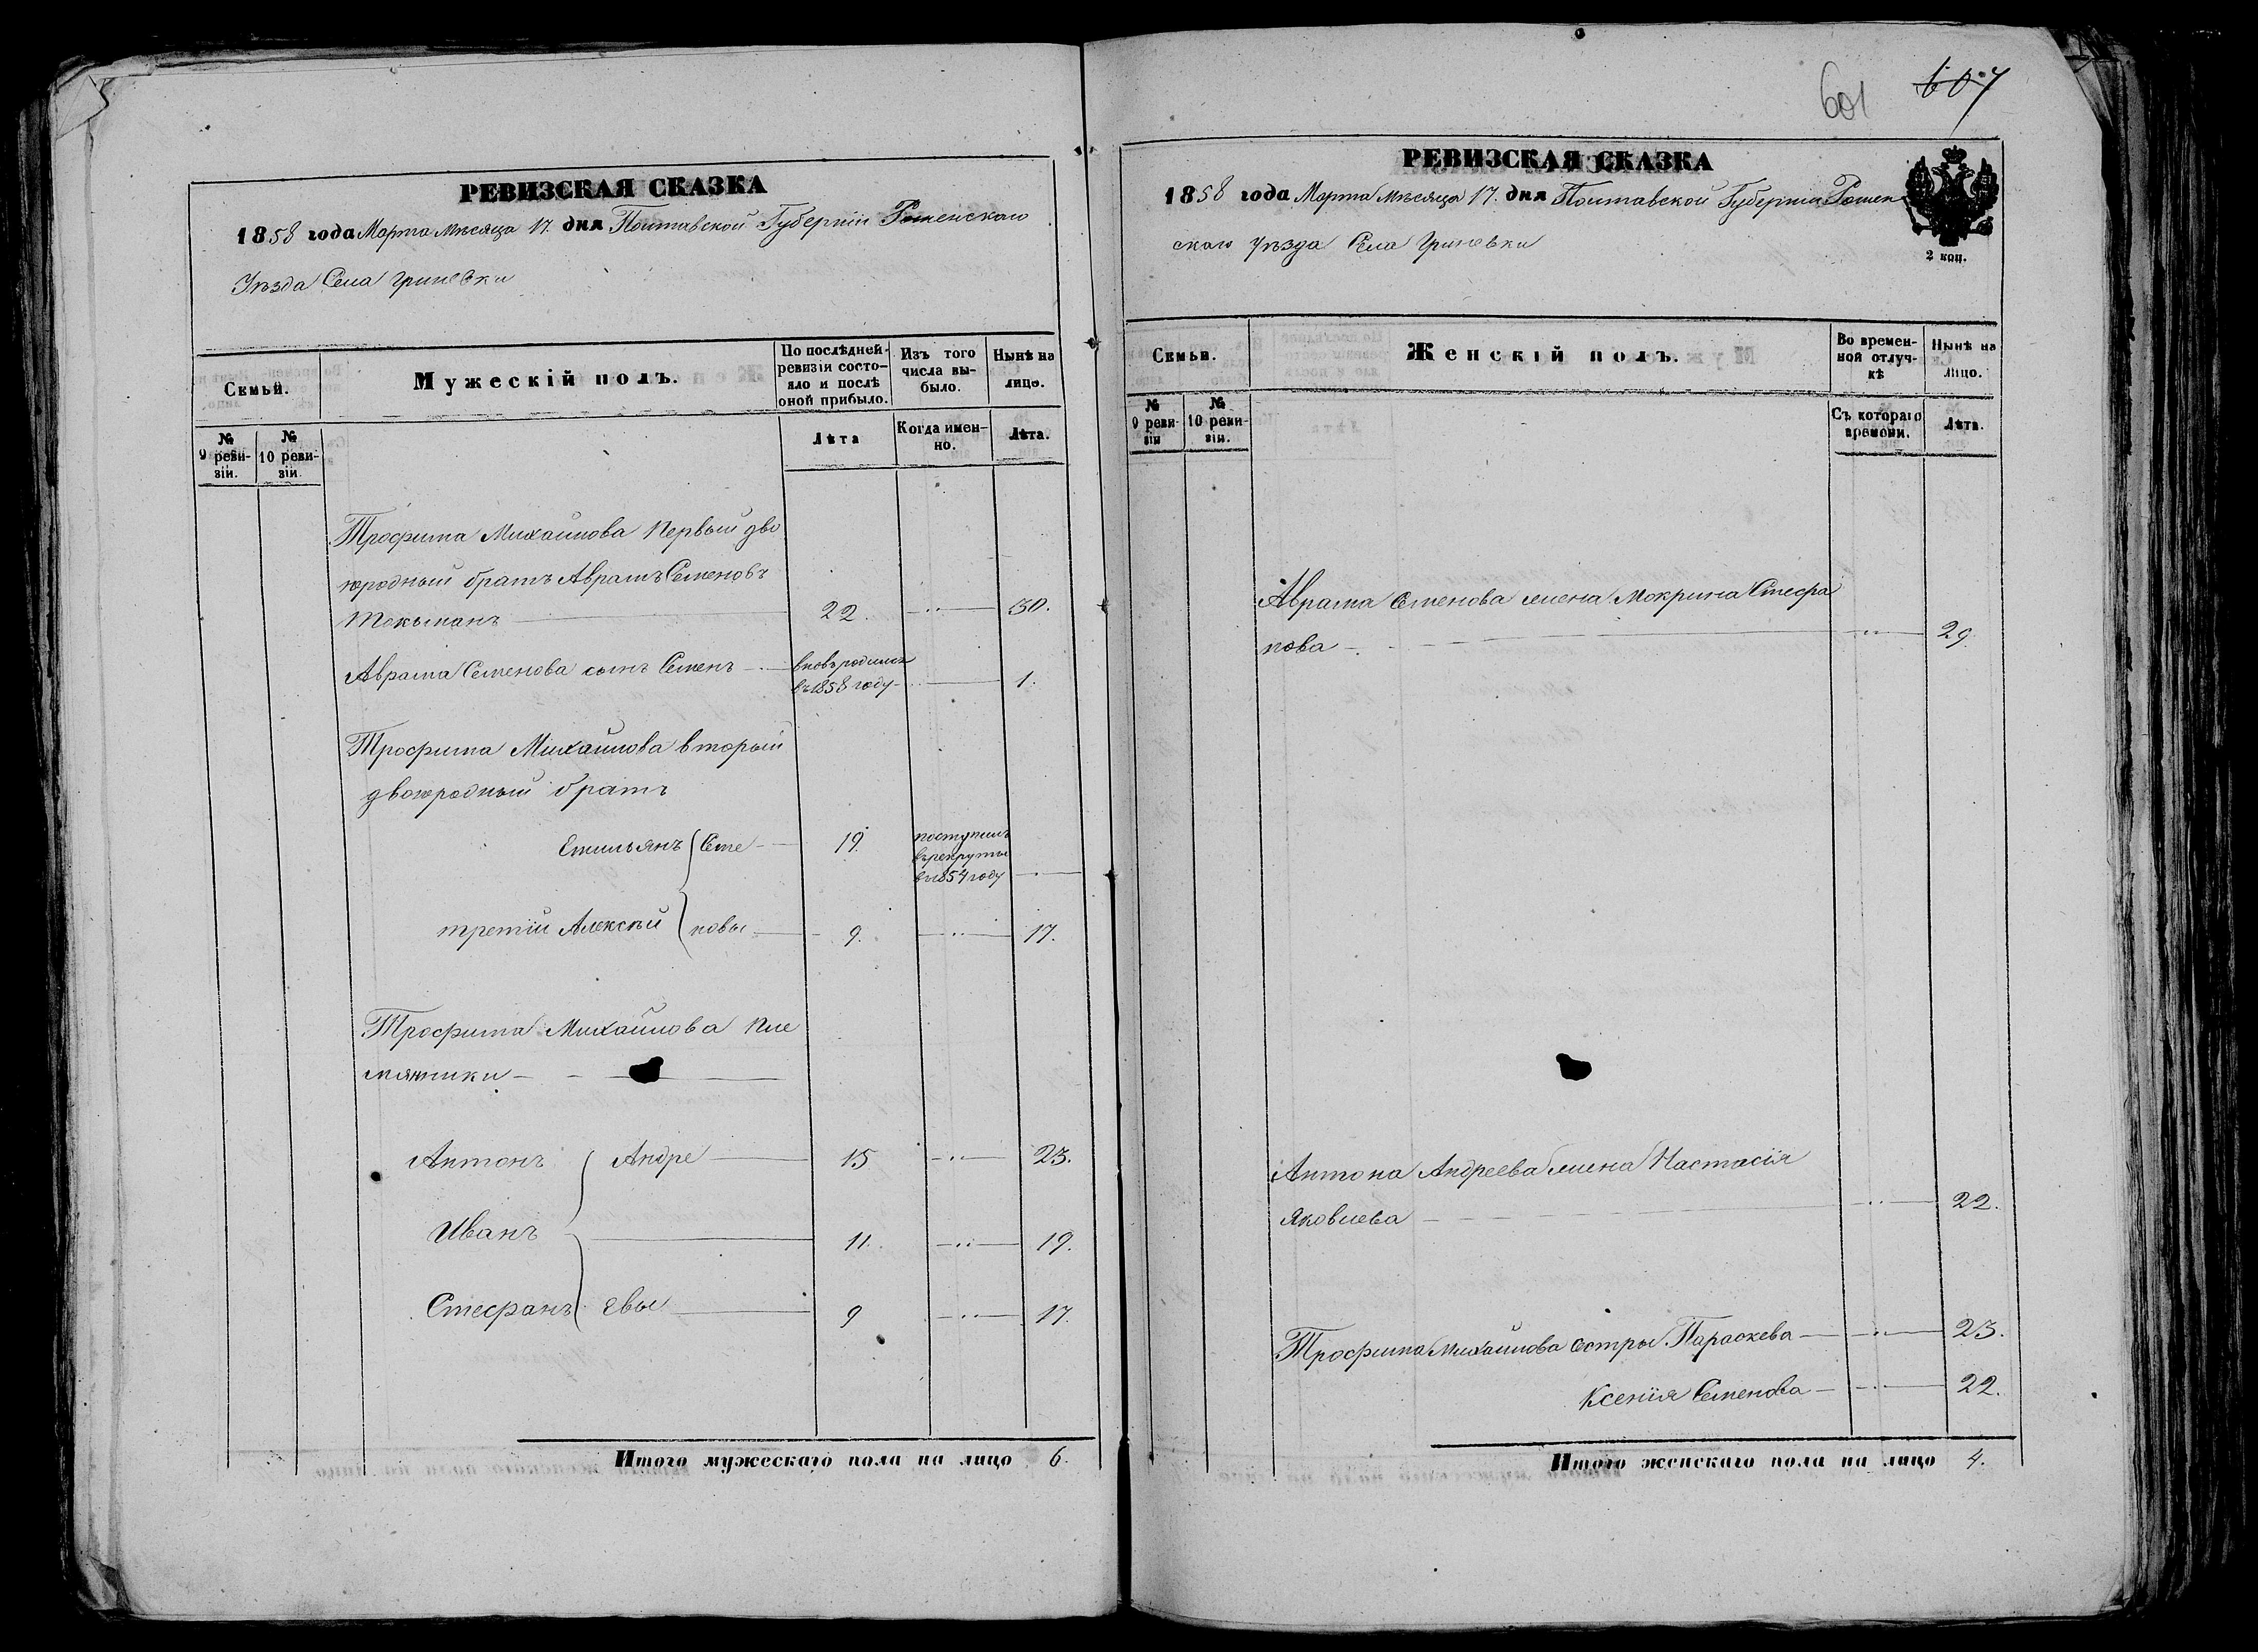 РЕВИЗСКАЯ СКАЗКА
1858 года Марта Мѣсяца 17. дня Полтавской Губерніи Роменскаго
Уѣзда Села Гриневки
Семьи.
Мужескій полъ.
По послѣдней ревизіи состояло и послѣ оной прибыло.
Изъ того числа выбыло.
Нынѣ на лицо.
№ 9 ревизіи.
№ 10 ревизіи.
Лѣта
Когда именно.
Лѣта.
Трофима Михайлова Первый дво
юродный братъ Аврамъ Семеновъ
22. 30.
Аврама Семенова сынъ Семенъ вновь родился
въ 1858 году 1.
Трофима Михайлова вторый
двоюродный братъ
Емильянъ Семе 19. поступилъ
въ рекруты
въ 1854 году
третій Алексѣй новы 9. 17.
Трофима Михайлова пле
мянники
Антонъ Андре 15 23.
Иванъ 11. 19.
Стефанъ евы 9 17.
Итого мужескаго пола на лицо 6.
601 607
РЕВИЗСКАЯ СКАЗКА
1858 года Марта Мѣсяца 17. дня Полтавской Губерніи Ромен
скаго уѣзда Села Гриневки
2 коп.
Семьи.
Женскій полъ.
Во временной отлучкѣ
Нынѣ на лицо.
№ 9 ревизіи
№ 10 ревизіи.
Съ котораго времени.
Лѣта.
Аврама Семенова жена Мокрина Стефа
нова 29.
Антона Андреева жена Настасія
Яковлева 22.
Трофима Михайлова сестры Параскева 23.
Ксенія Семенова 22.
Итого женскаго пола на лицо 4.